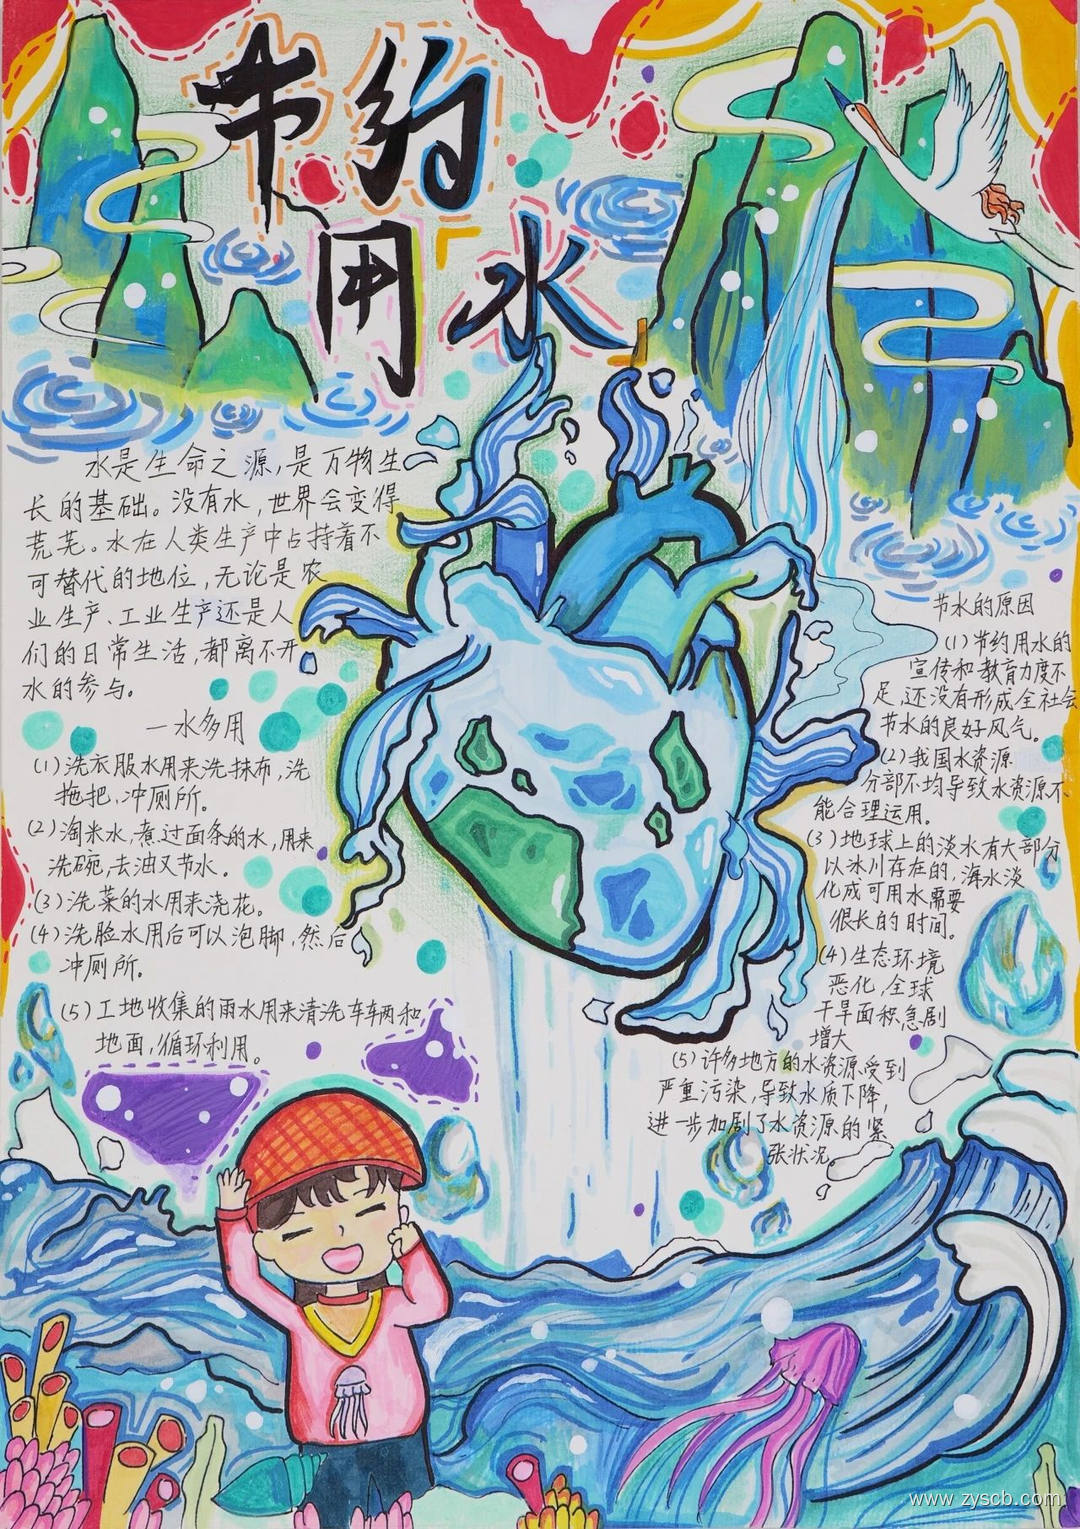 节约
用水
水是生命之源,是万物生
长的基础。没有水,世界会变得
荒芜。水在人类生产中占持着不
可替代的地位,无论是农
业生产、工业生产还是人
们的日常生活,都离不开
水的参与。
一水多用
(1)洗衣服水用来洗抹布,洗
拖把,冲厕所。
(2)淘米水,煮过面条的水,用来
洗碗,去油又节水。
(3)洗菜的水用来浇花。
(4)洗脸水用后可以泡脚,然后
冲厕所。
(5)工地收集的雨水用来清洗车车两和
地面,循环利用。
节水的原因
(1)节约用水的
宣传和教育力度不
足,还没有形成全社会
节水的良好风气。
(2)我国水资源
分部不均导致水资源不
能合理运用。
(3)地球上的淡水有大部分
以冰川存在的,海水淡
化成可用水需要
很长的时间。
(4)生态环境
恶化,全球
干旱面积急剧
增大
(5)许多地方的水资源受到
严重污染,导致水质下降,
进一步加剧了水资源的紧
张状况
www.zyscb.com